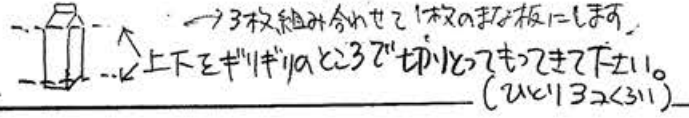 →3枚組み合わせて1枚のまな板にします。
上下をギリギリのところで切りとってもってきて下さい。
(ひとり3こくらい)